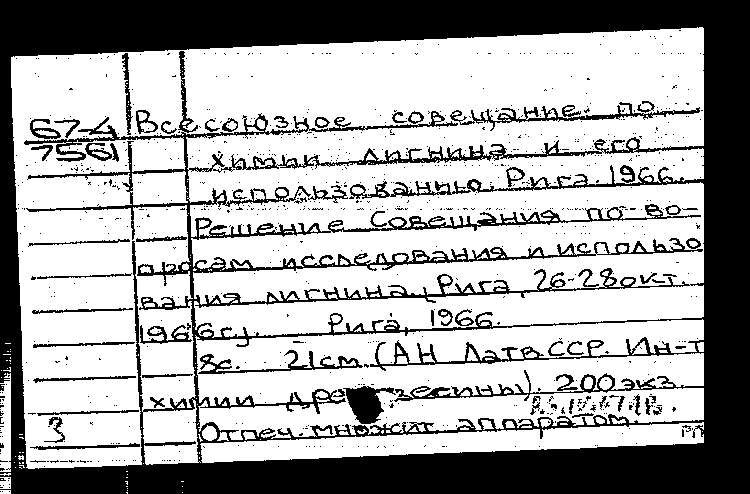 67-4
7561
Всесоюзное совещание по
химии лигнина и его
использованию. Рига. 1966.
Решение Совещания по во-
просам исследования и использо
вания лигнина. (Рига, 26-28 окт.
1966 г.). Рига, 1966.
8с. 21см. (АН Латв.ССР. Ин-т
химии древесины). 200 экз.
3 Отпеч. множит. аппаратом.